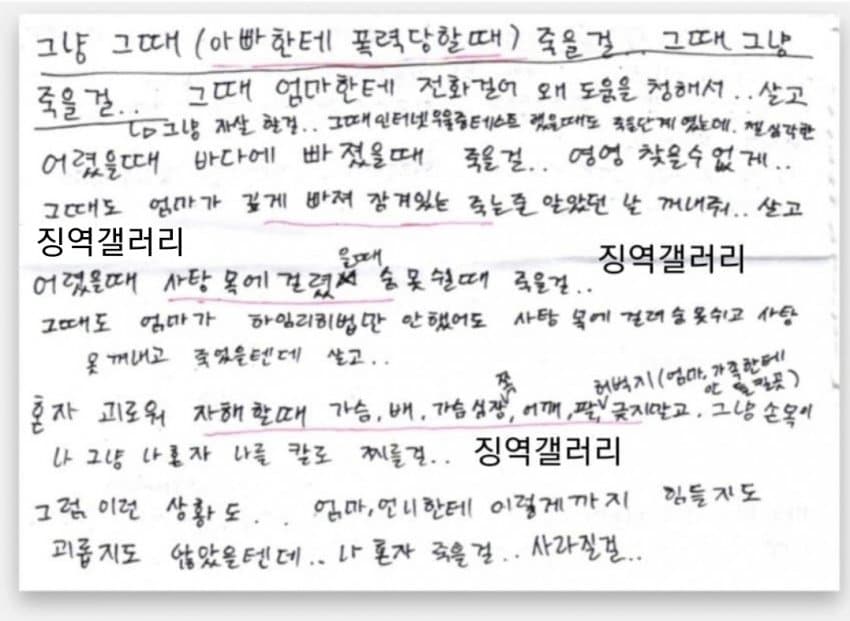 그냥 그때 (아빠한테 폭력당할때) 죽을걸... 그때 그냥
죽을걸.. 그때 엄마한테 전화걸어 왜 도움을 청해서.. 살고
↳ 그냥 자살 할걸.. 그때 인터넷 우울증테스트 했을때도 죽음단계 였는데. 젤 심각한
어렸을때 바다에 빠졌을때 죽을걸.. 영영 찾을수 없게..
그때도 엄마가 깊게 빠져 잠겨있는 죽는줄 알았던 날 꺼내줘.. 살고
징역갤러리
징역갤러리
어렸을때 사탕 목에 걸렸을때 숨 못쉴때 죽을걸..
그때도 엄마가 하임리히법만 안했어도 사탕 목에 걸려 숨 못쉬고 사탕
못 꺼내고 죽었을텐데 살고..
쪽 허벅지(엄마, 가족한테
안 들킬곳)
혼자 괴로워 자해할때 가슴, 배, 가슴심장, 어깨, 팔, 긋지말고. 그냥 손목이
나 그냥 나혼자 나를 칼로 찌를걸..
징역갤러리
그럼 이런 상황도.. 엄마, 언니한테 이렇게까지 힘들지도
괴롭지도 않았을텐데.. 나 혼자 죽을걸.. 사라질걸..